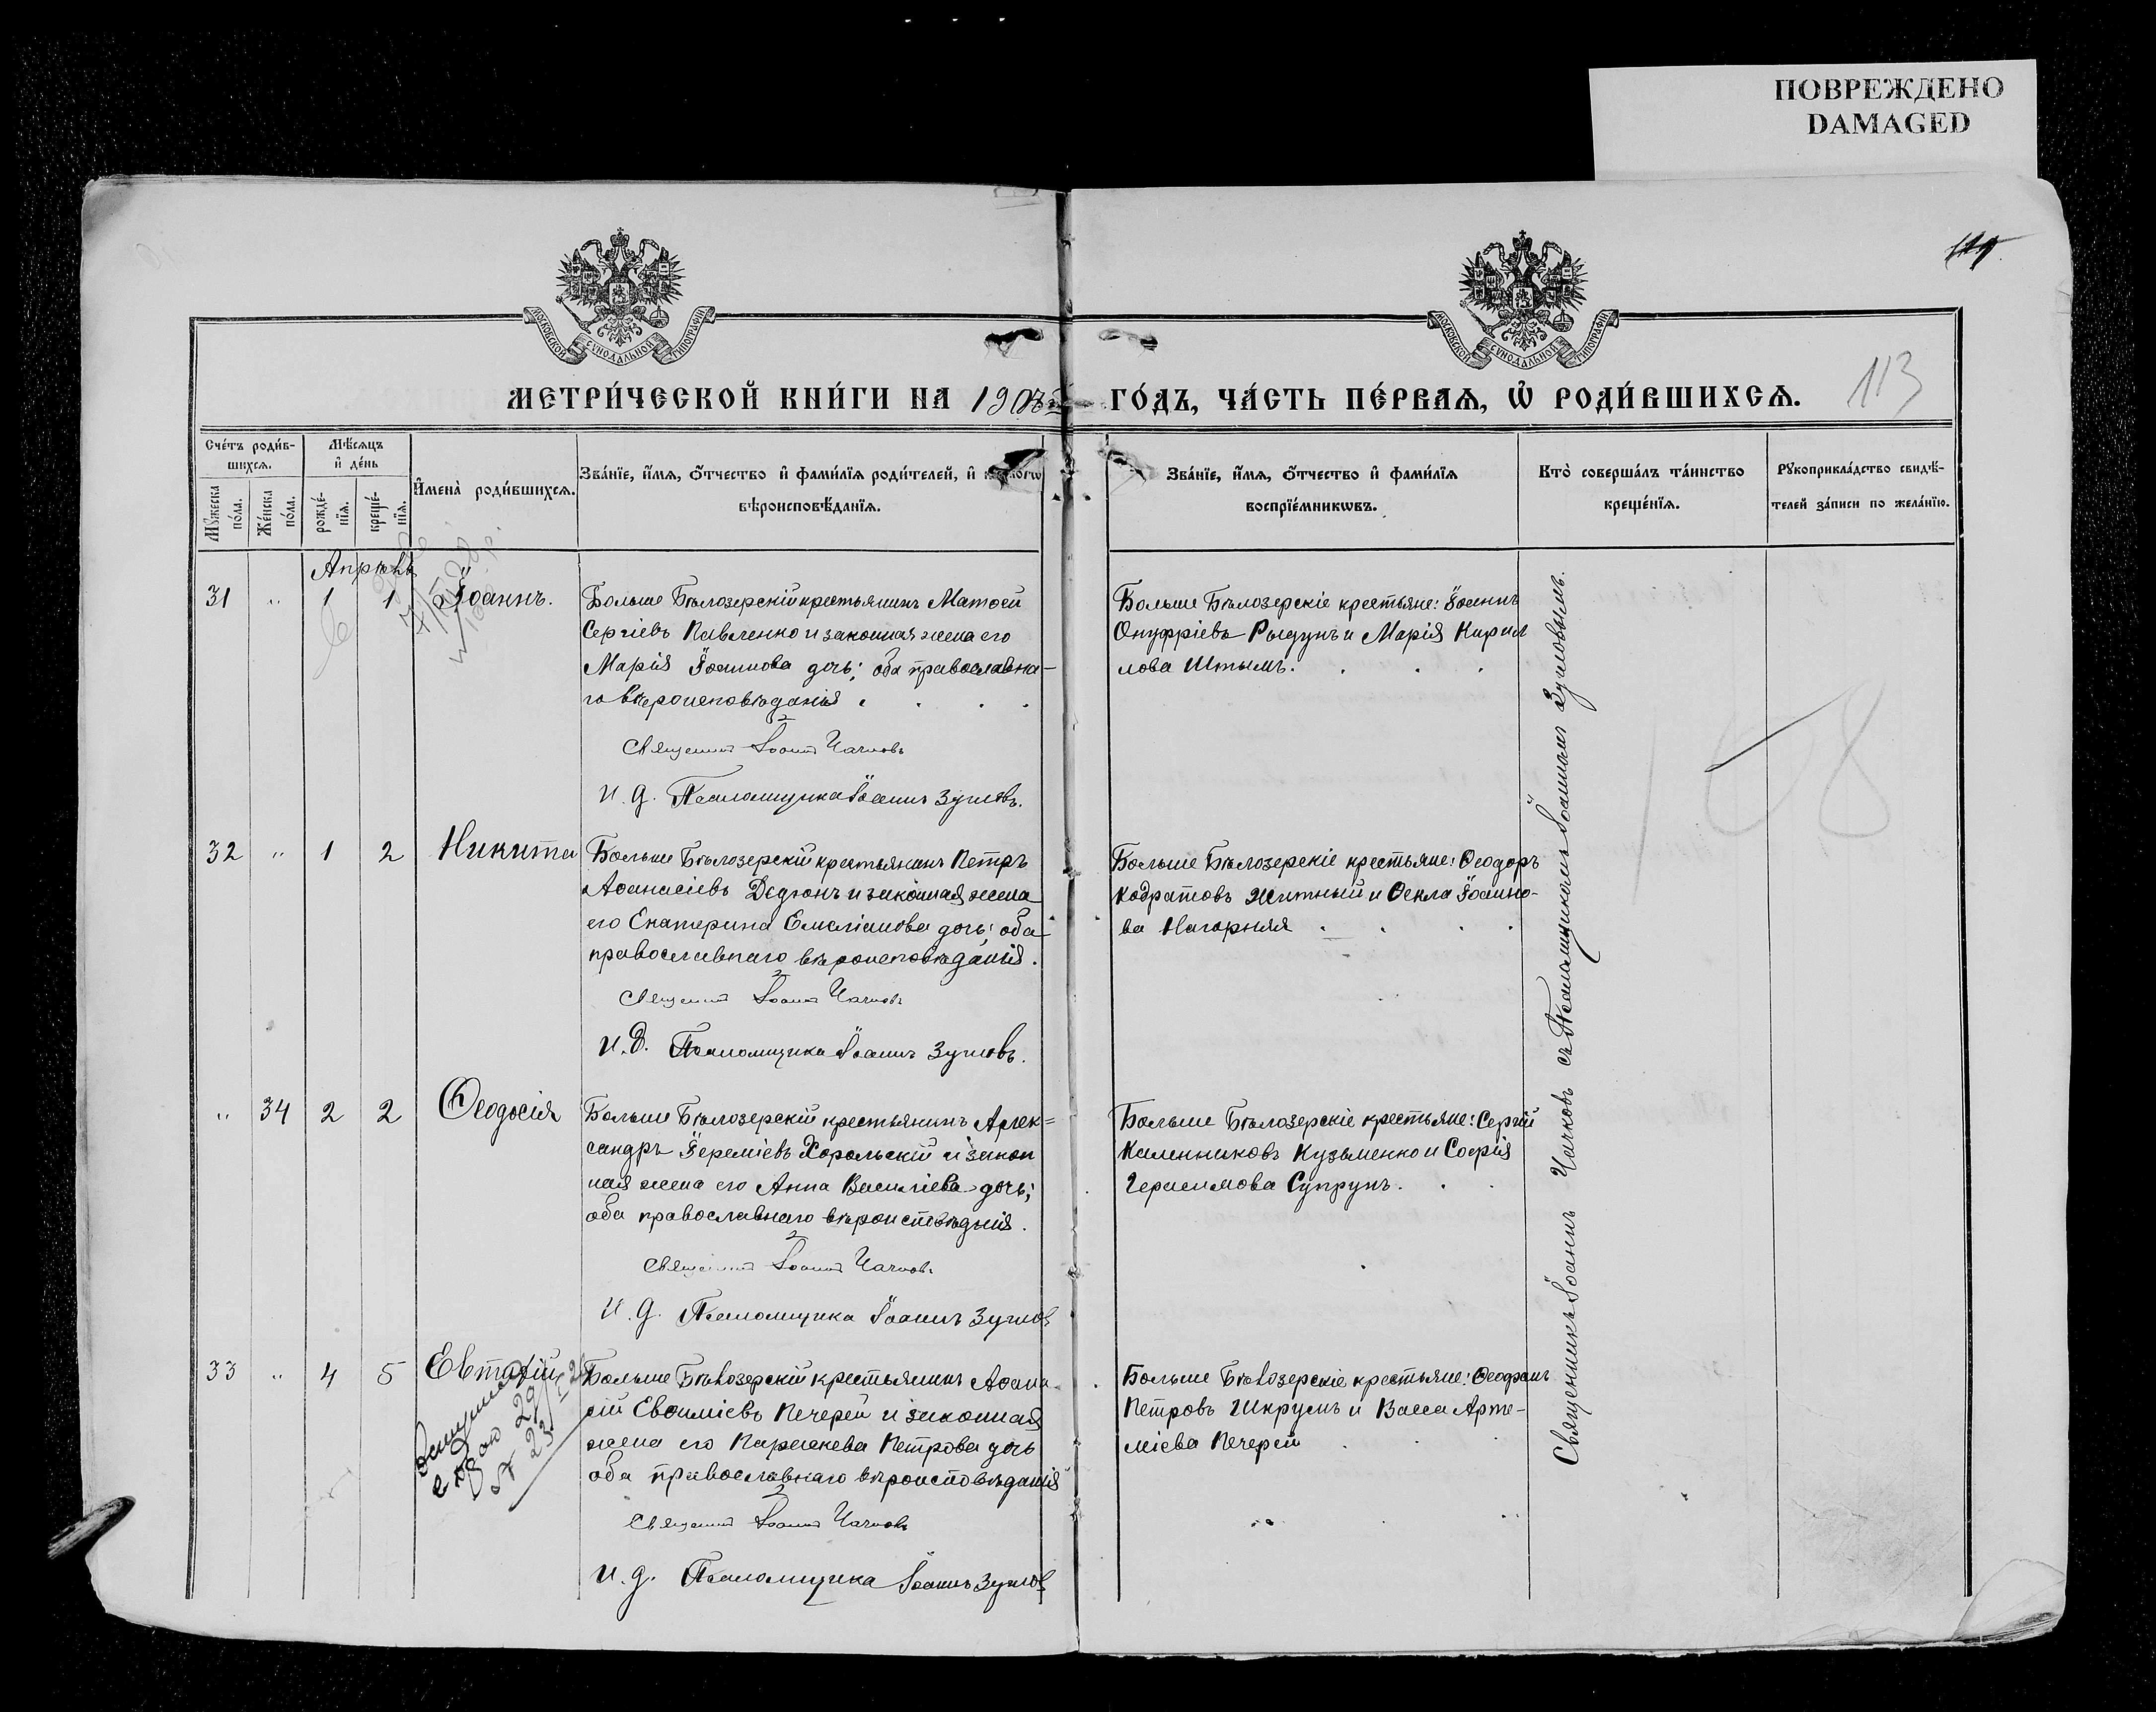 ПОВРЕЖДЕНО
DAMAGED
113
МОСКОВСКОЙ СѴНОДАЛЬНОЙ ТИПОГРАФІИ
МОСКОВСКОЙ СѴНОДАЛЬНОЙ ТИПОГРАФІИ
МЕТРИ́ЧЕСКОЙ КНИ́ГИ НА 190
ГО́ДЪ, ЧА́СТЬ ПЕ́РВАѦ, Ѡ҆ РОДИ́ВШИХСѦ.
Сче́тъ роди́в-
шихсѧ.
Мꙋ́жеска по́ла.
Же́нска по́ла.
Мѣ́сѧцъ
и҆ де́нь
рожде́-
нїѧ.
креще́-
нїѧ.
И҆мена̀ роди́вшихсѧ.
Зва́нїе, и҆́мѧ, ѻ҆́тчество и҆ фами́лїѧ роди́телей, и҆
вѣроисповѣ́данїѧ.
Зва́нїе, и҆́мѧ, ѻ҆́тчество и҆ фами́лїѧ
воспрїе́мникѡвъ.
Кто̀ соверша́лъ та́инство
креще́нїѧ.
Рꙋкоприкла́дство свидѣ́-
телей за́писи по жела́нїю.
Апрѣль
31 " 1 1 Іоаннъ.
Больше Бѣлозерскій крестьянинъ Матѳей
Сергіевъ Павленко и законная жена его
Марія Іоаннова дочь; оба православна-
го вѣроисповѣданія.
Священникъ Іоаннъ Чачковъ
И. д. Псаломщика Іоаннъ Зуиловъ.
Больше Бѣлозерскіе крестьяне: Іоаннъ
Онуфріевъ Рыдунъ и Марія Кирил
лова Штымъ.
32 " 1 2 Никита
Больше Бѣлозерскій крестьянинъ Петръ
Аѳанасіевъ Дедюнъ и законная жена
его Екатерина Емеліанова дочь; оба
православнаго вѣроисповѣданія.
Священникъ Іоаннъ Чачковъ
И. д. Псаломщика Іоаннъ Зуиловъ.
Больше Бѣлозерскіе крестьяне: Ѳеодоръ
Кодратовъ Житный и Ѳекла Іоанно-
ва Нагорняя
" 34 2 2 Ѳеодосія
Больше Бѣлозерскій крестьянинъ Алек=
сандръ Іереміевъ Хорольскій и закон
ная жена его Анна Василіева дочь;
оба православнаго
Священникъ Іоаннъ Чачковъ
И. д. Псаломщика Іоаннъ Зуилов
Больше Бѣлозерскіе крестьяне: Сергій
Каленниковъ Кузьменко и Софія
Герасимова Супрунъ.
33 " 4 5 Евтихій
Больше Бѣлозерскій крестьянинъ Аѳана
сій Евѳиміевъ Печерей и законная
жена его Параскева Петрова дочь
оба православнаго вѣроисповѣданія
Священникъ Іоаннъ Чачковъ
И. д. Псаломщика Іоаннъ Зуилов
Больше Бѣлозерскіе крестьяне: Ѳеофанъ
Петровъ Шкрумъ и Васса Арте-
міева Печерей
Священникъ Іоаннъ Чачковъ съ Псаломщикомъ Іоанномъ Зуиловымъ.